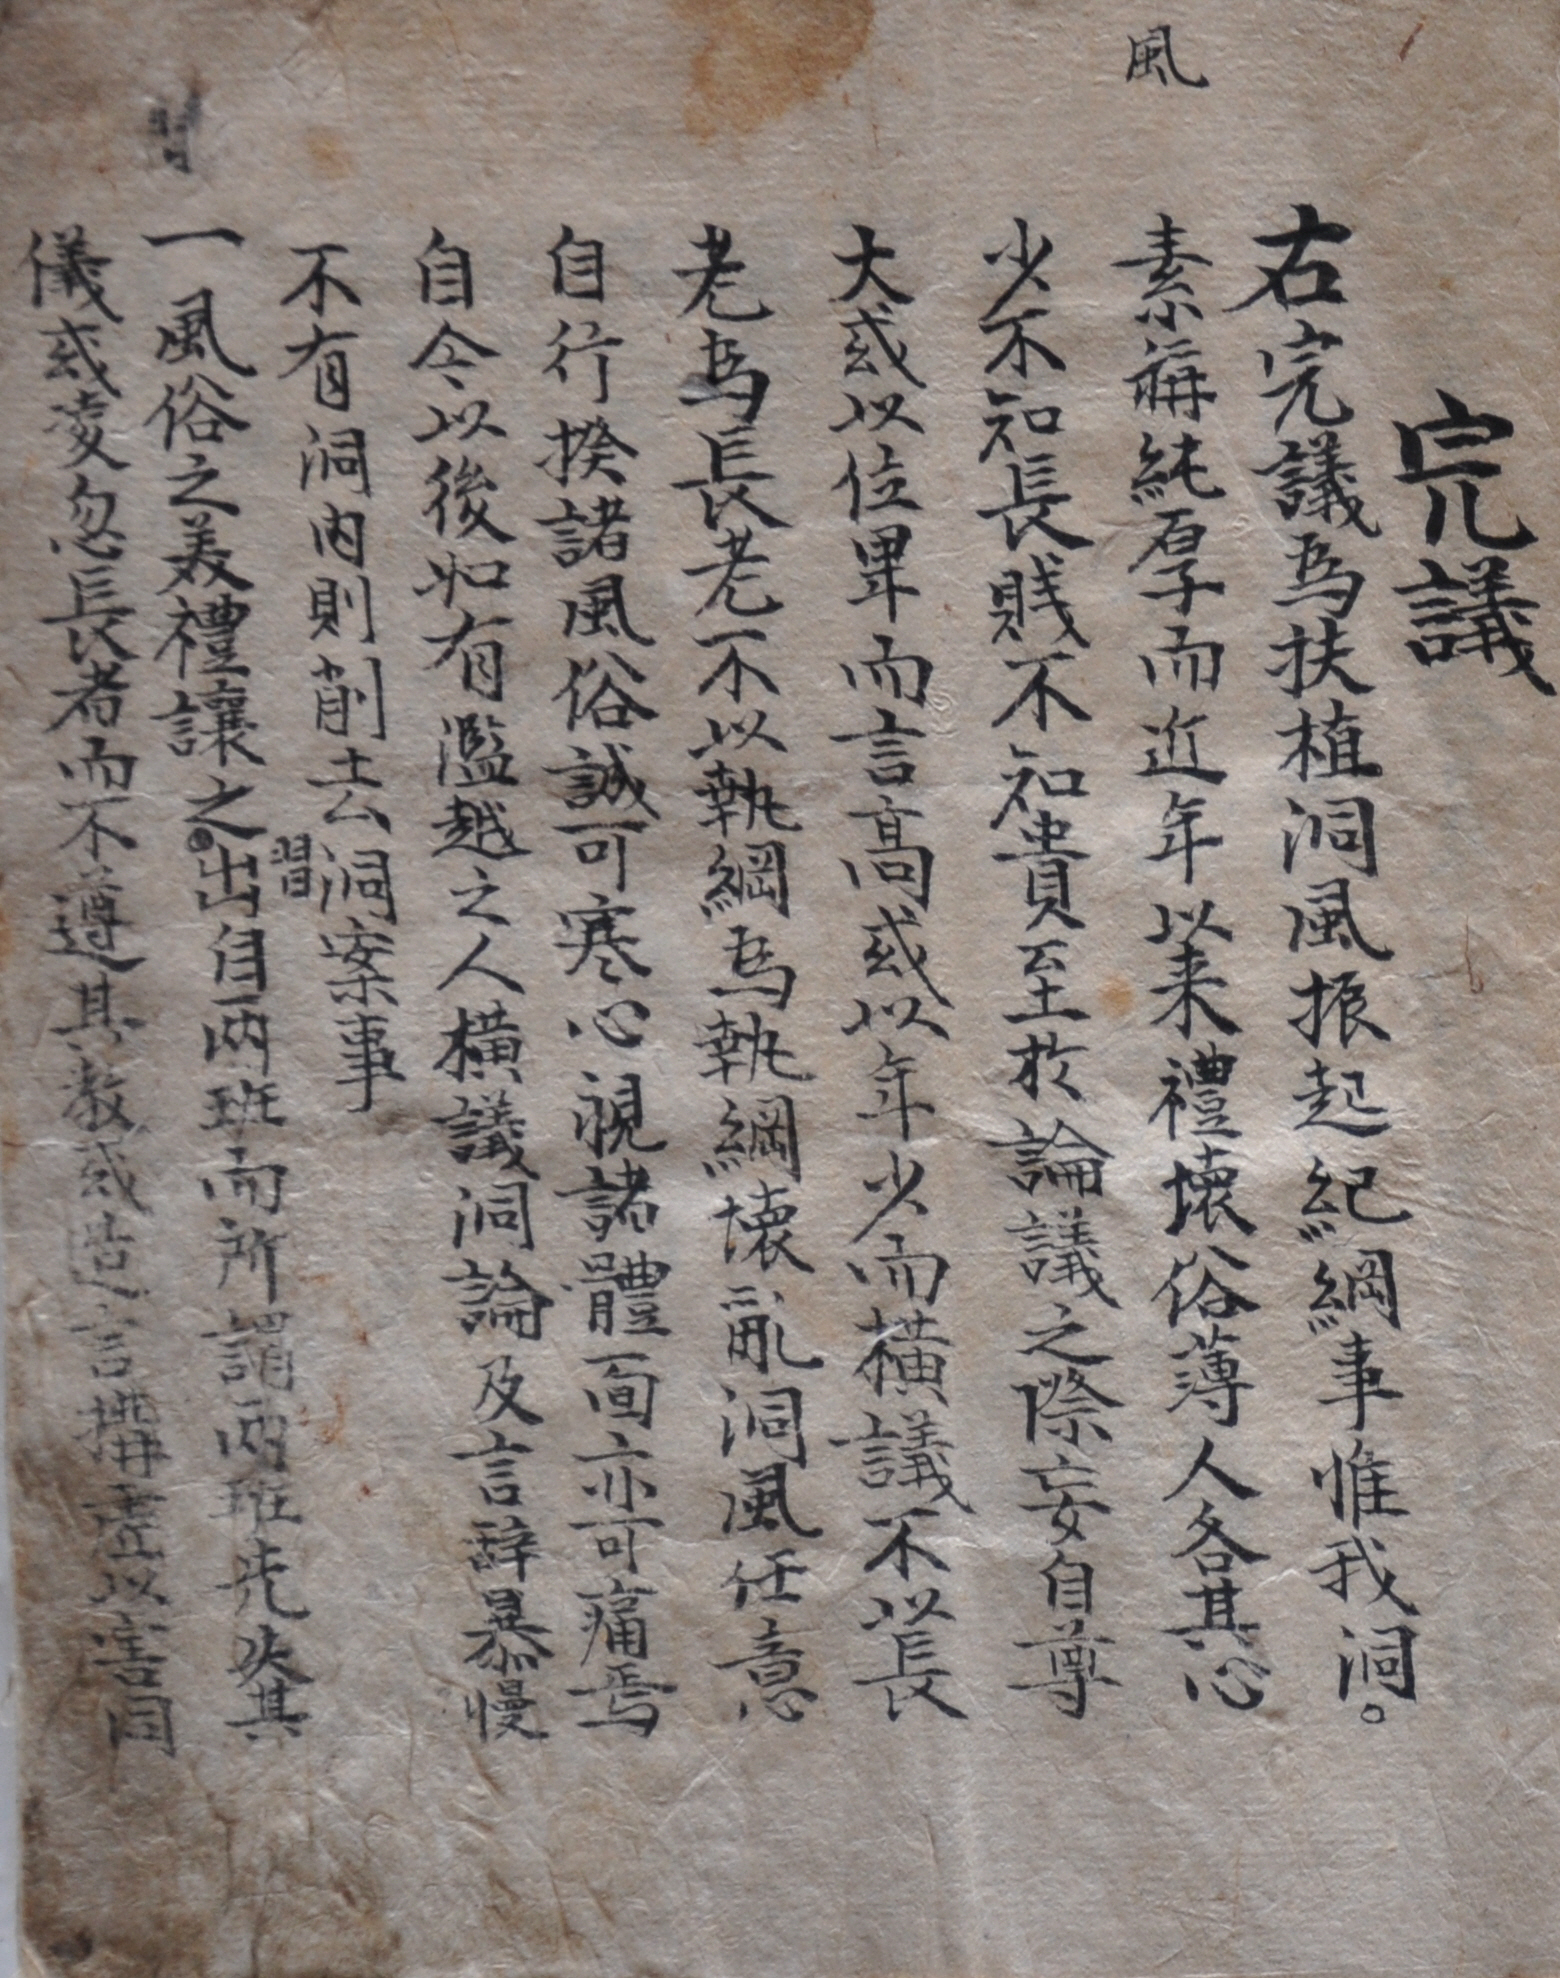 完議
右完議為扶植洞風振起紀綱事惟我洞。
風
素稱純厚而近年以来禮壞俗薄人各其心
少不知長賤不知貴至於論議之際妄自尊
大或以位卑而言高或以年少而橫議不以長
老為長老不以執綱為執綱壞亂洞風任意
自行揆諸風俗誠可寒心視諸體面亦可痛焉
自今以後如有濫越之人橫議洞論及言辞暴慢
不有洞內則削去洞案事
習
一風俗之美禮讓之出自両班而所謂両班先失其
儀或凌忽長者而不遵其教或造言搆虛以害同